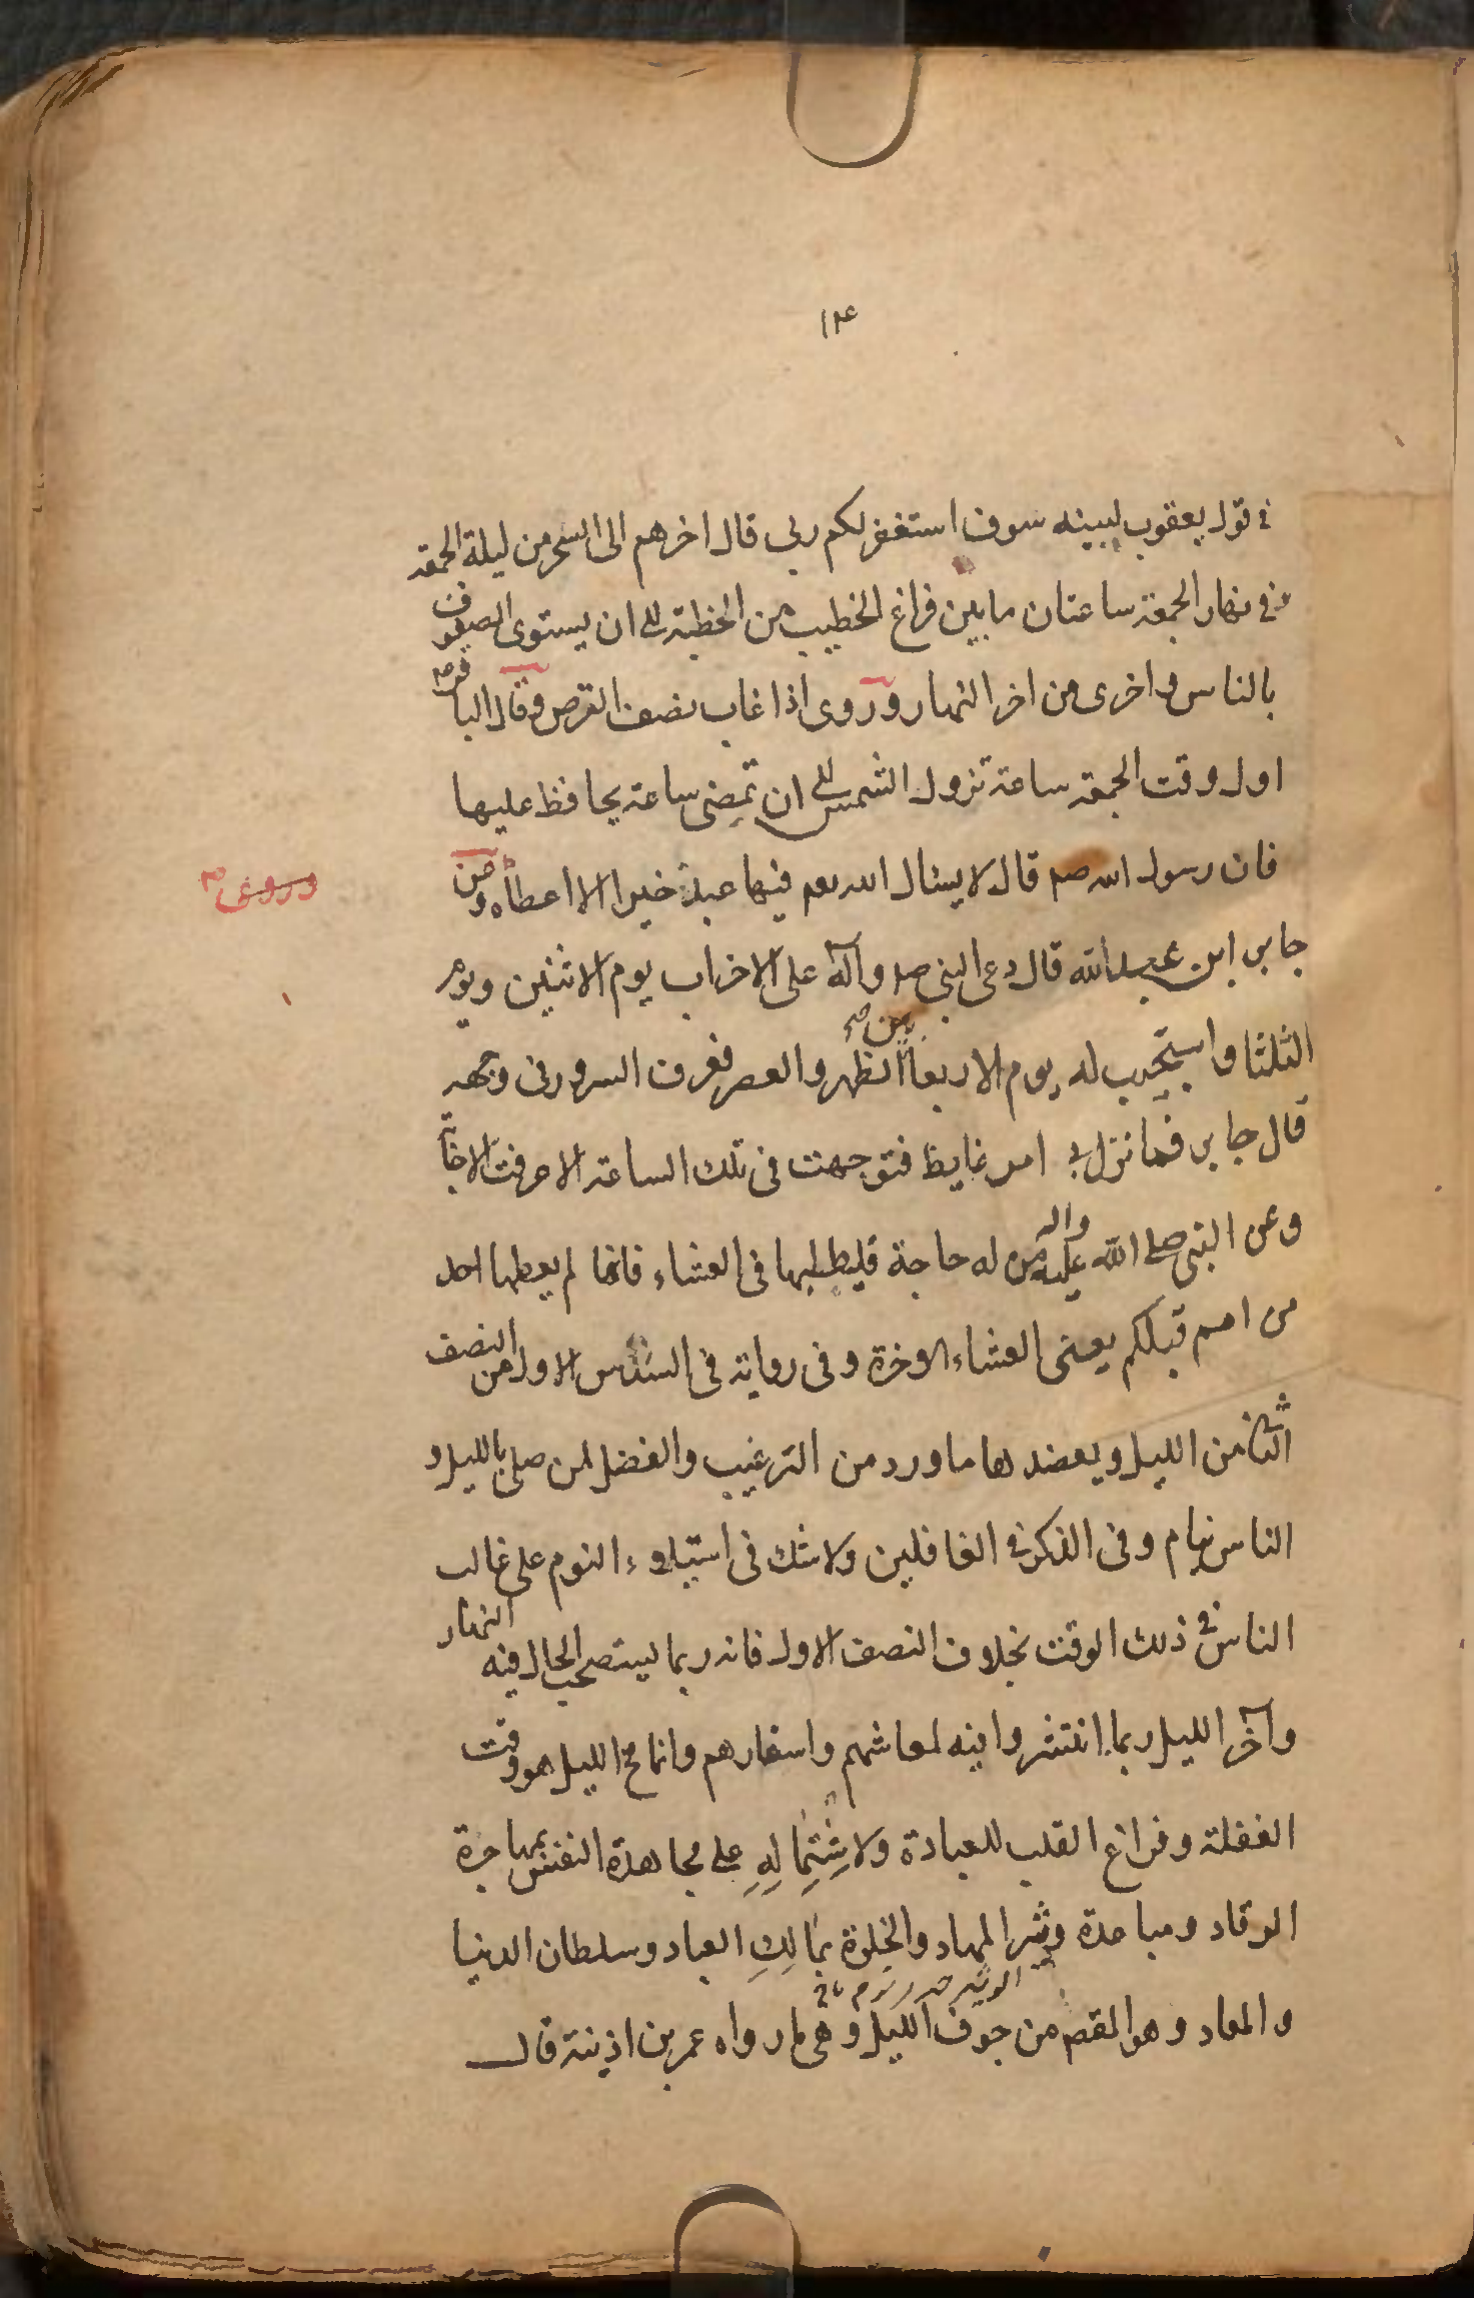 ١٣٤
في قول يعقوب لبنيه سوف استغفر لكم ربى قال اخرهم الى السحر من ليلة الجمعة
و فى نهار الجمعة ساعتان ما بين فراغ الخطيب من الخطبة الى ان يستوى الصفوف
بالناس و اخرى من اخر النهار و روى اذا غاب نصف القرص و قال الباقر ع
اول وقت الجمعة ساعة تزول الشمس الى ان تمضى ساعة يحافظ عليها
فان رسول الله صم قال لا يسئال الله تعم فيها عبد خيرا الا اعطاه و من
وروى
جابر ابن عبد الله قال دعى النبى صم وآله على الاخراب يوم الاثنين ويوم
الثلثا و استجيب له يوم الاربعا بين الظهر والعصر فعرف السرور فى وجهه
قال جابر فما نزل بى امر غايظ فتوجهت فى تلك الساعة الا عرفت الاجابة
وعن النبى صلى الله عليه واله من له حاجة فليطلبها فى العشاء فانها لم يعطها احد
من امم قبلكم يعنى العشاء الاخرة و فى رواية فى السدس الاول من النصف
الثانى من الليل و يعضدها ما ورد من الترغيب والفضل لمن صلى بالليل و
الناس نيام و فى الذكر فى الغافلين ولا شك فى استيلاء النوم على غالب
الناس فى ذلك الوقت بخلاف النصف الاول فانه ربما يستصحب الحال فيه النهار
وآخر الليل ربما انتشروا فيه لمعاشهم واسفارهم وانما مخ الليل هو وقت
الغفلة و فراغ القلب للعبادة ولاشتماله على مجاهدة النفس بمهاجرة
الرقاد و مباعدة وثير المهاد والخلوة بمالك العباد و سلطان الدنيا
و المعاد و هو المقصم من جوف الليل و هى لما رواه عمر بن اذينة قال